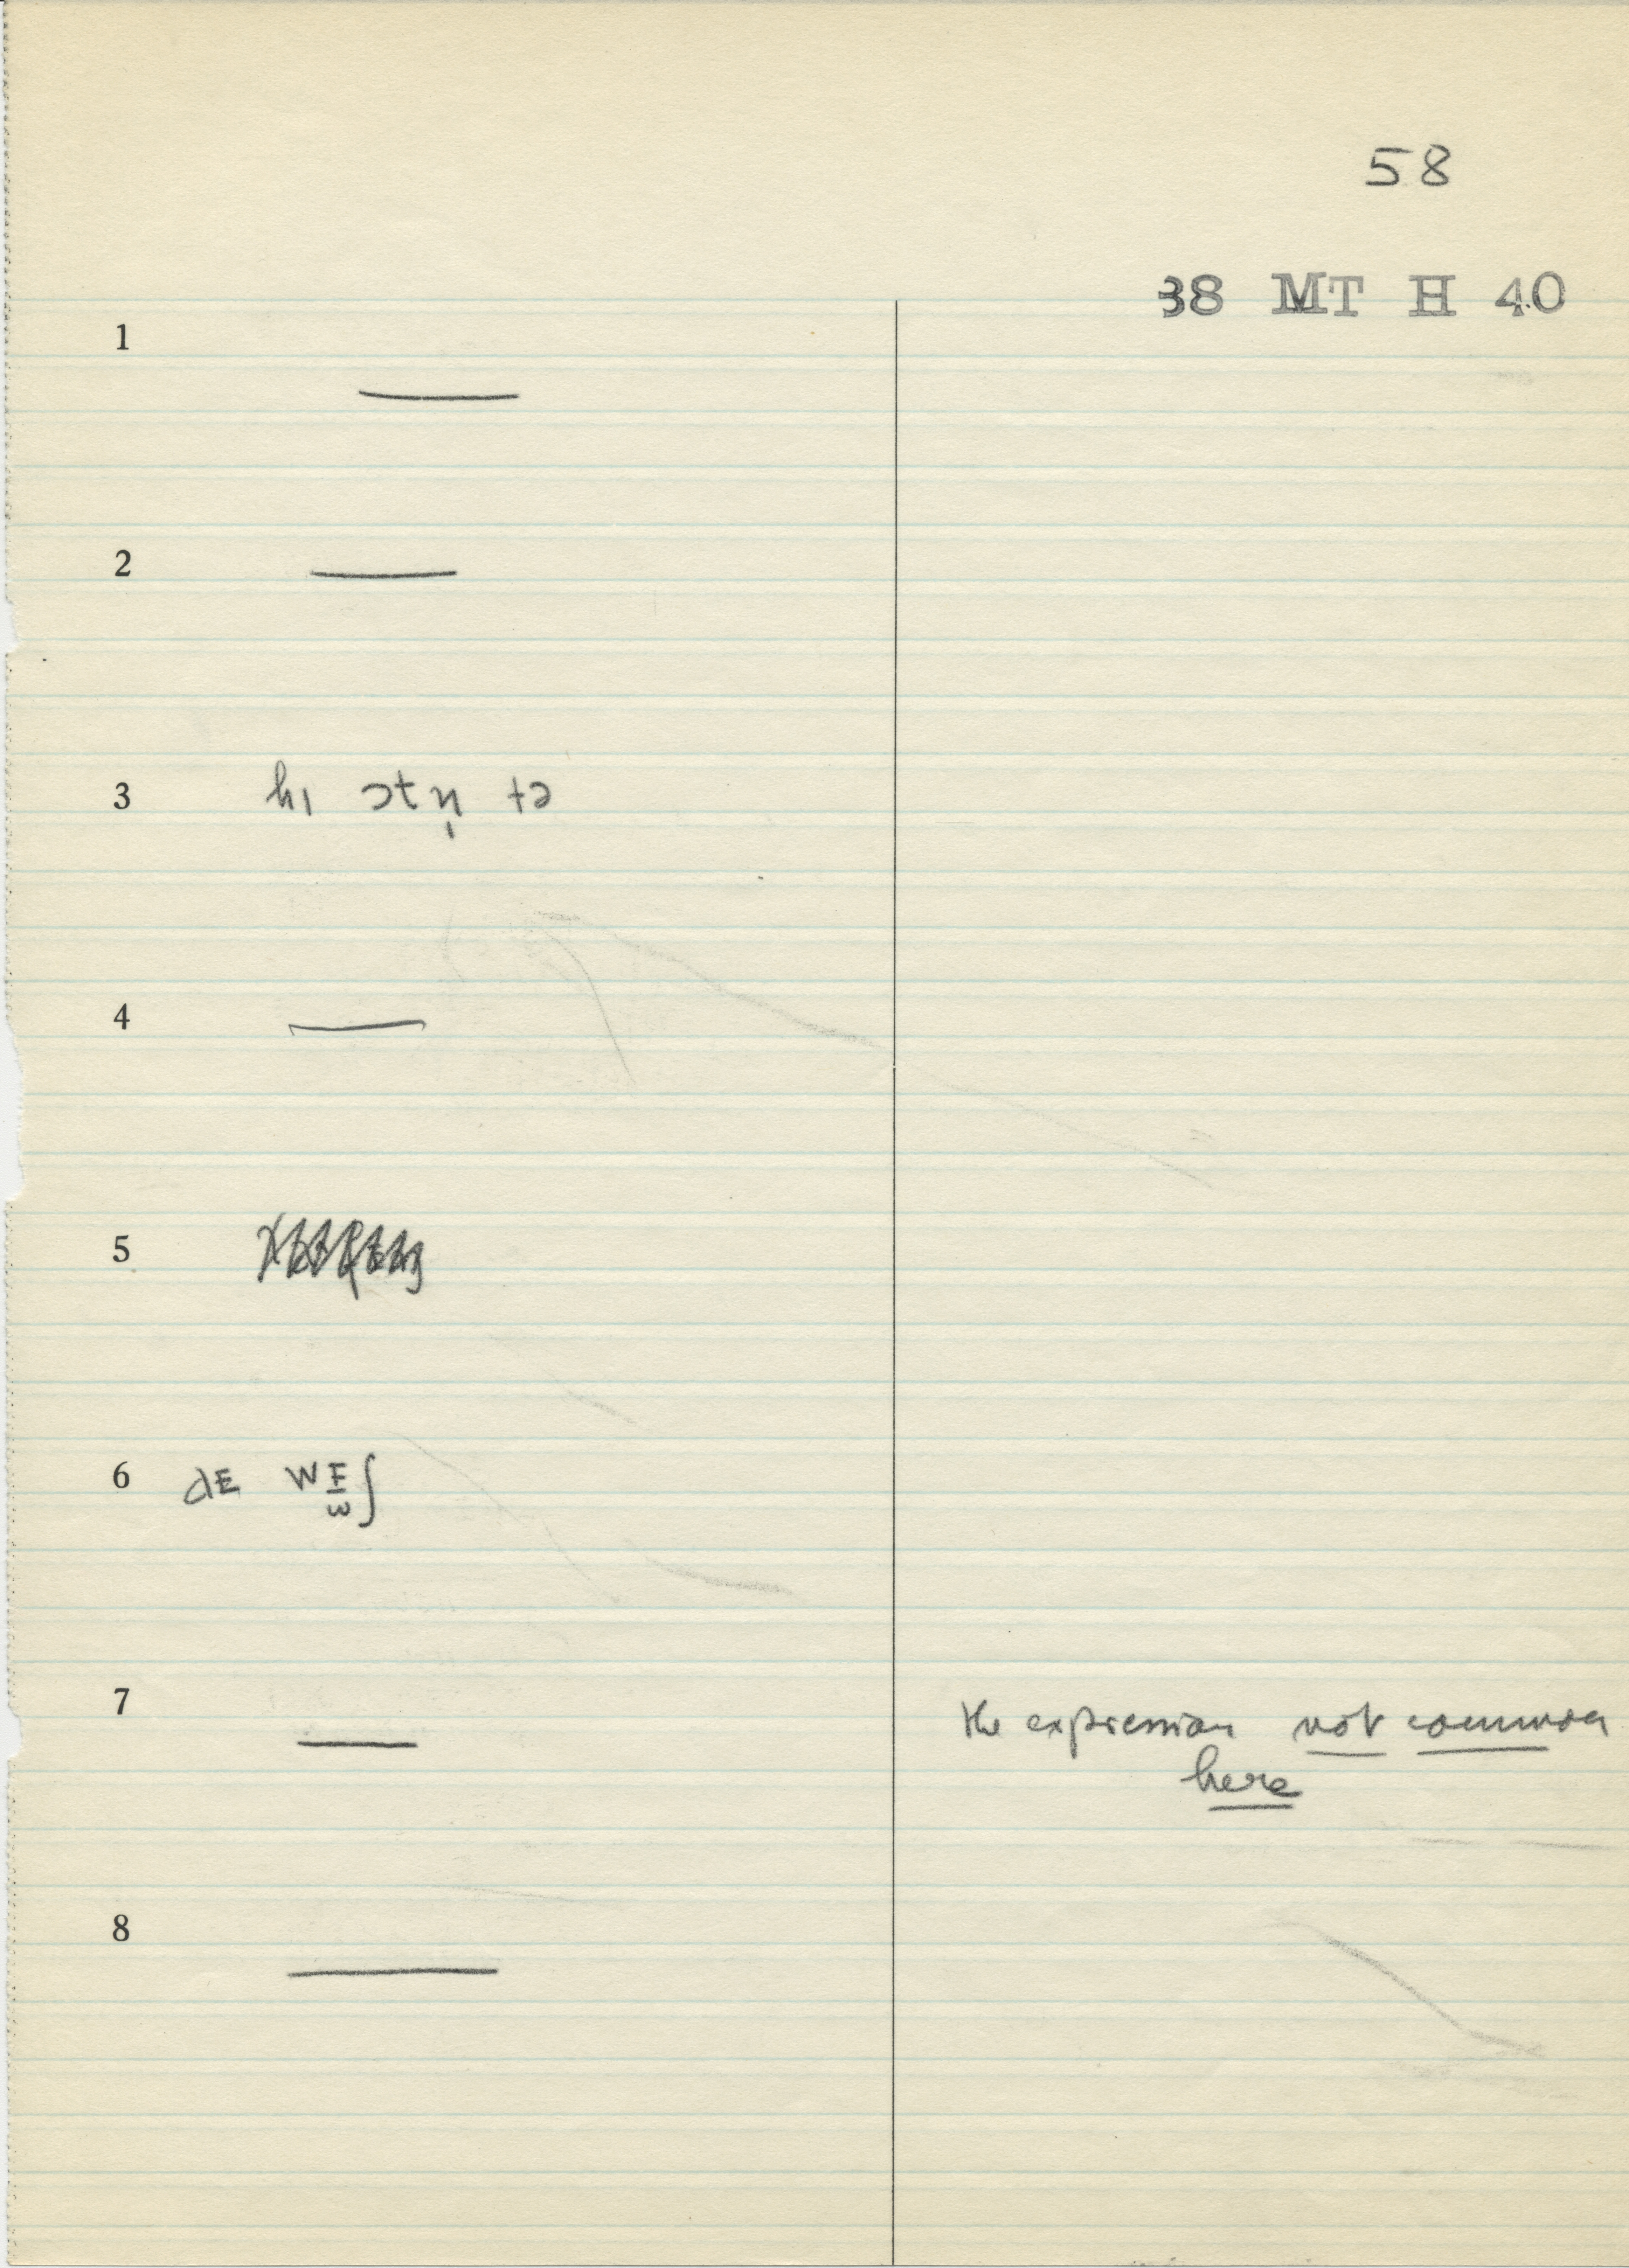 58
38 MT H 40
1 —
2 —
3 hɪ ɔtn̩ tə
4 —
5
6 dE wE̱ʃ
ω
7 — the expression not common
here
8 —